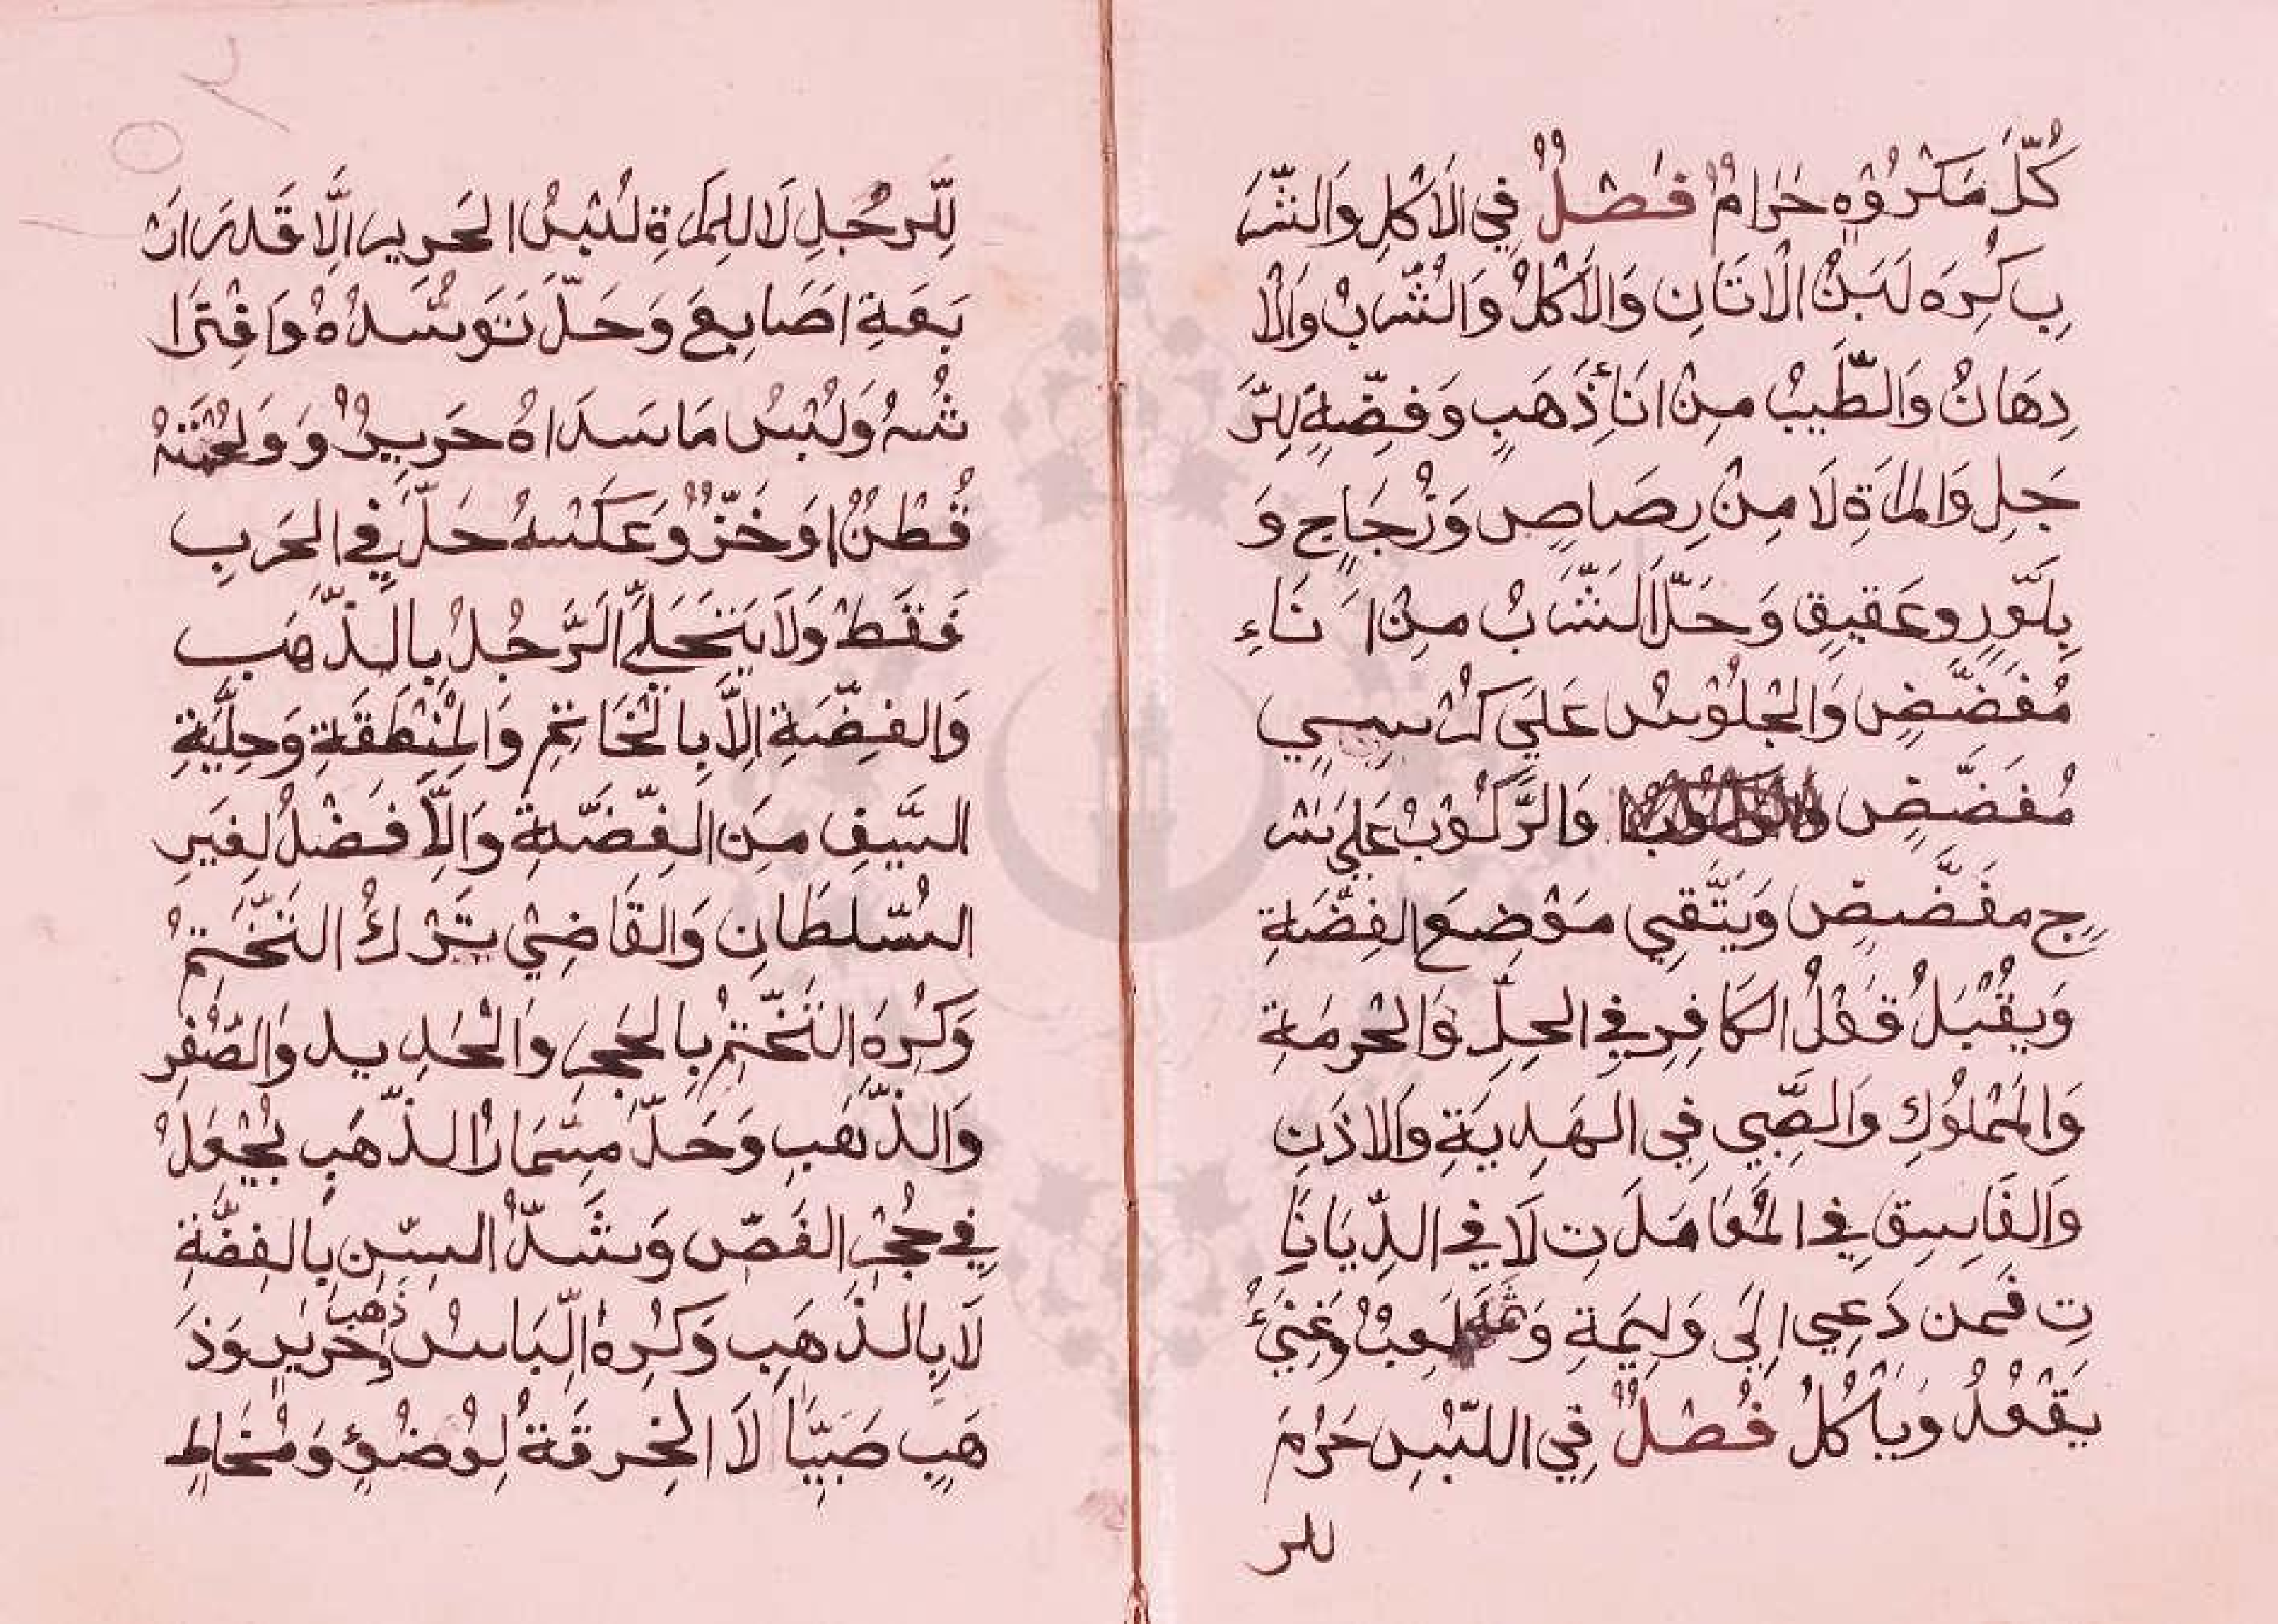 كُلُّ مَكْرُوْهٍ حَرَامٌ فَصْلٌ فِي الْاَكْلِ وَالشُّرْ
بِ كُرِهَ لَبَنُ الْاَتَانِ وَالْاَكْلُ وَالشُّرْبُ وَالْاِ
دِهَانُ وَالطِّيبُ مِنْ اِنَاءِ ذَهَبٍ وَفِضَّةٍ لِلرَّ
جُلِ وَالْمَرْاَةِ لَا مِنْ رِصَاصٍ وَزُجَاجٍ وَ
بِلَّوْرٍ وَعَقِيقٍ وَحَلَّ الشُّرْبُ مِنْ اِنَاءٍ
مُفَضَّضٍ وَالْجُلُوْسُ عَلَي كُرْسِيٍ
مُفَضَّضٍ وَالرُّكُوْبُ عَلَي سَرْ
جٍ مفَضَّضٍ وَيَتَّقِي مَوْضِعَ الْفِضَّةِ
وَيُقْبَلُ قَوْلُ الْكَافِرِ فِي الْحِلِّ وَالْحُرْمَةِ
وَالْمَمْلُوْكِ وَالصَّبِي فِي الْهَدِيَةِ وَالاذْنِ
وَالْفَاسِقِ فِي الْمُعَامَلَتِ لَا فِي الدِّيَانَا
تِ فَمن دُعِي اِلَى وَلِيْمَةٍ وَثَمَّةَ لَعِبٌ وَغِنَيءٌ
يَقْعُدُ وَيَاْكُلُ فَصْلٌ فِي اللُّبْسِ حَرُمَ
للر
لِلرَّجُلِ لَا لِلْمَرْاَةِ لُبْسُ الْحَرِيرِ اِلَّا قَدْرَ اَرْ
بَعَةِ اَصَابِعَ وَحَلَّ تَوَسُّدُهُ وَافْتِرَا
شُهُ وَلُبْسُ مَا سَدَاهُ حَرِيرٌ وَ وَلُحْمَتُهُ
قُطْنٌ اَوْ خَزٌّ وَعَكْسُهُ حَلَّ فِي الْحَرْبِ
فَقَطْ وَلَا يَتَحَلَّي الرَّجُلُ بِالذَّهَبِ
وَالْفِضَّةِ اِلَّا بِالْخَاتَمِ وَالْمِنْطَقَةِ وَحِلْيَةِ
السَّيْفِ مِنَ الْفِضَّةِ وَالْاَفْضَلُ لِغَيْرِ
السُّلْطَانِ وَالْقَاضِيْ تَرْكُ التَّخَتُّمِ
وَكُرِهَ التَّخَتُّمُ بِالْحَجَرِ وَالْحَدِيدِ وَالصُّفْرِ
وَالذَّهَبِ وَحَلَّ مِسْمَارُ الذَّهَبِ يُجْعَلُ
فِي حُجْرِ الْفَصِّ وَشَدُّ السِّنِ بِالْفِضَّةِ
لَا بِالذَّهَبِ وَكُرِهَ اِلْبَاسُ ذَهَبٍ وَحَرِيْرٍ وَذَ
هَبٍ صَبِيًّا لَا الْخِرْقَةُ لِوُضُوْءٍ وَمُخَاطٍ